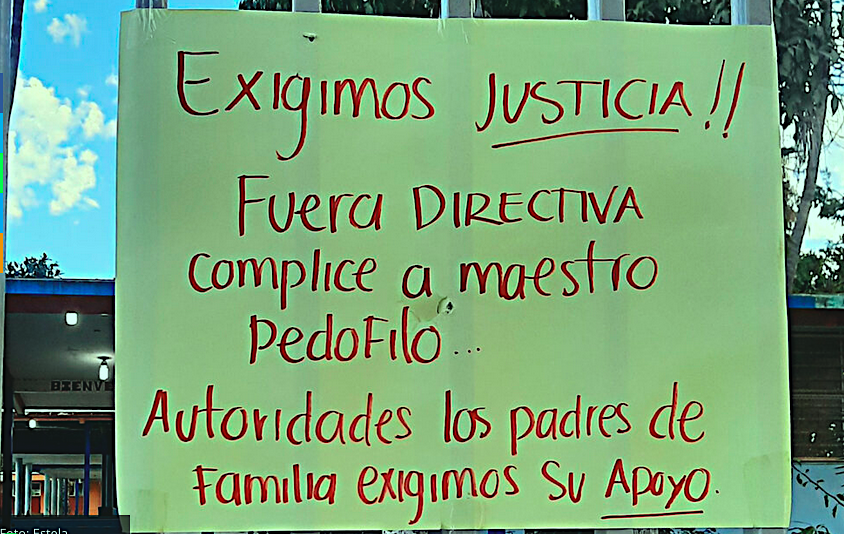 Exigimos JUSTICIA!!
Fuera DIRECTIVA
complice a maestro
PedoFilo...
Autoridades los padres de
Familia exigimos Su APoyo.
BIENVE
Foto: Estela